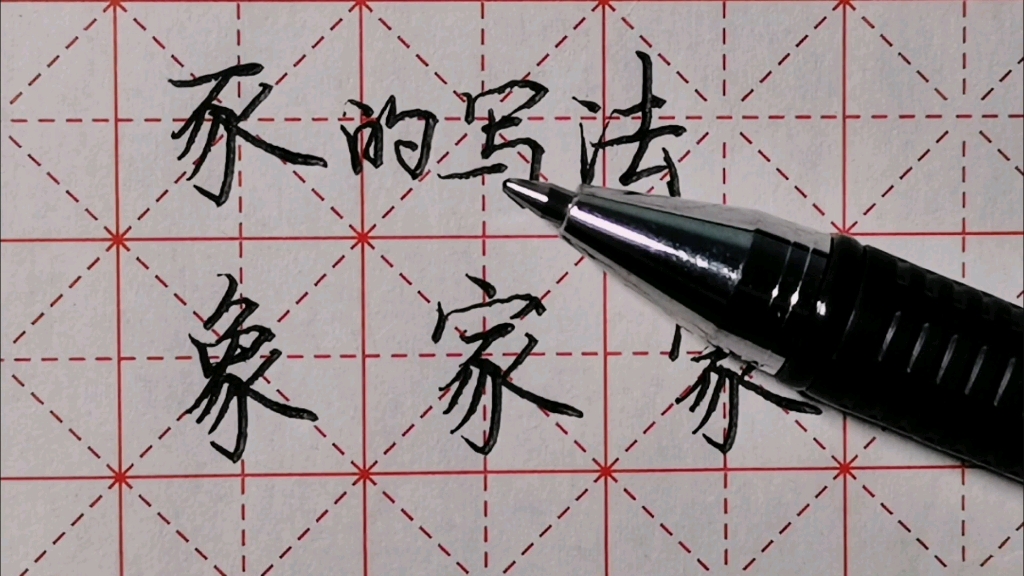 豕的写法
象家